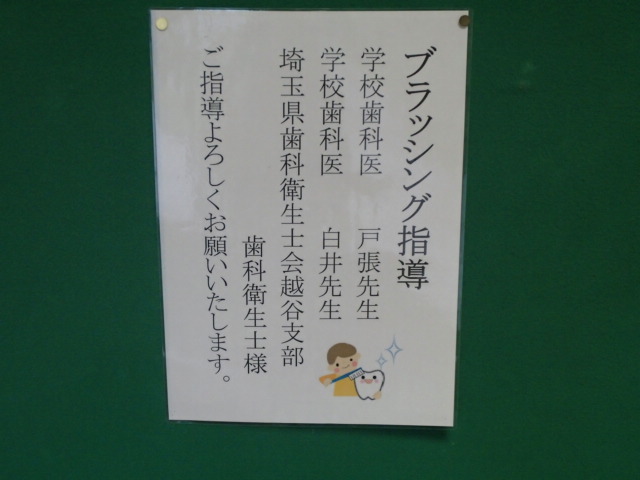 ブラッシング指導
学校歯科医　戸張先生
学校歯科医　白井先生
埼玉県歯科衛生士会越谷支部
歯科衛生士様
ご指導よろしくお願いいたします。